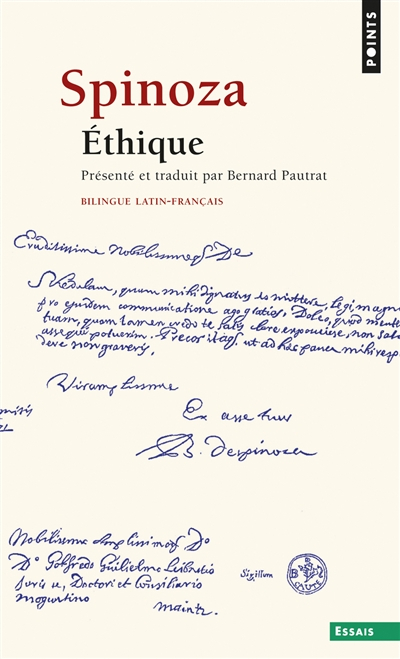 POINTS
Spinoza
Éthique
Présenté et traduit par Bernard Pautrat
BILINGUE LATIN-FRANÇAIS
Eruditissime Nobilissimeqs De
Schedulam, quam mihi dignatus es mittere, legi, magna
pro ejusdem communicatione ago gratias, Doleo, quod mente
tuam, quam tamen credo te satis clare exposuisse, non sat
assequi potuerim. Precor itaqs ut ad hæc pauca mihi resp
dere non graveris,
Vir amplissime
Ex asse tuus
B. despinoza
Nobilissimo Amplissimoqs Do
Do Gotfredo Guilielmo Leibnitio
Juris u, Doctori et Consiliario
moguntino
maintz
Sigillum
B D S
CAUTE
ESSAIS